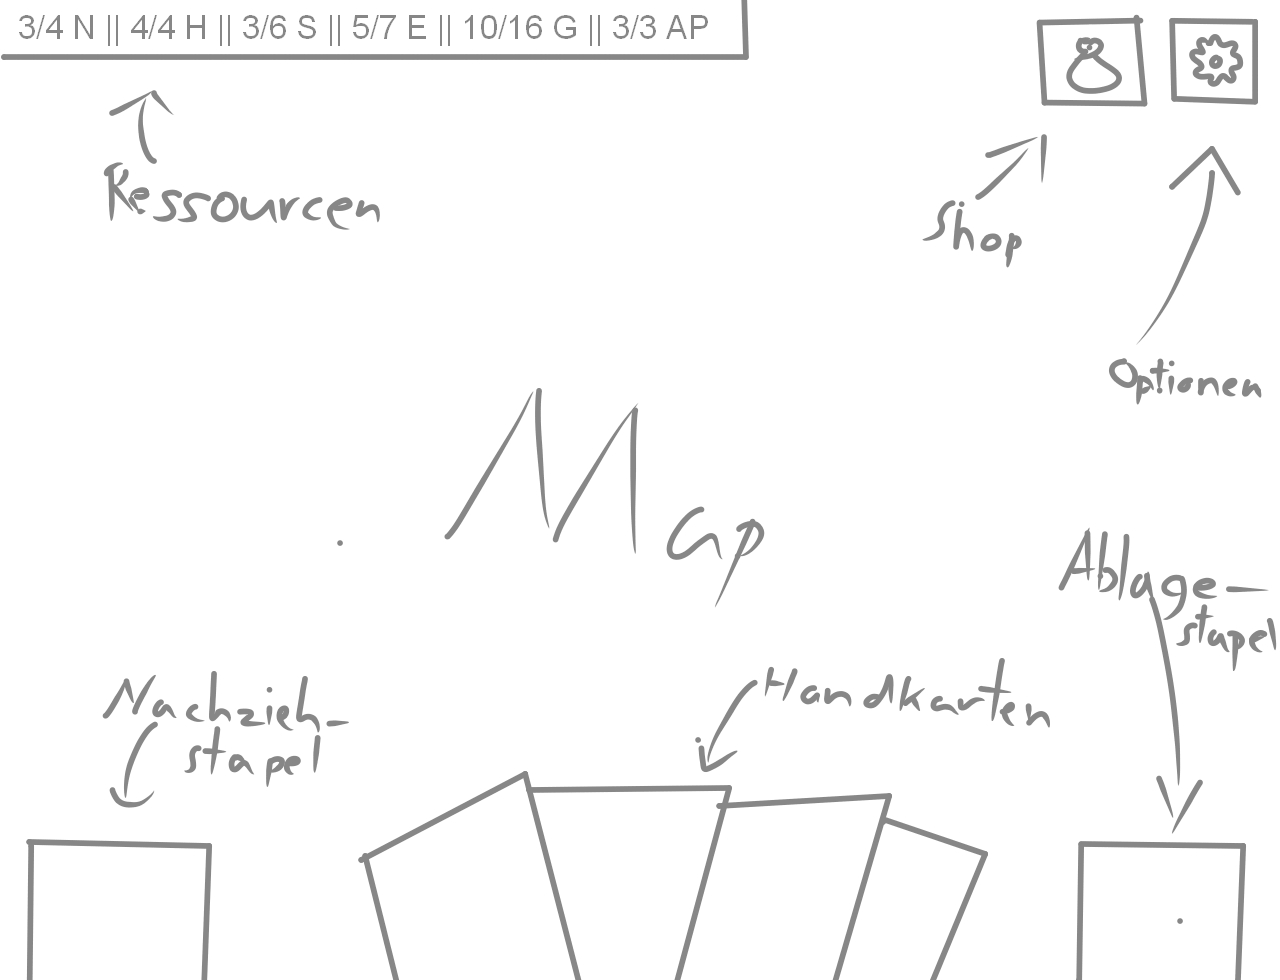 3/4 N || 4/4 H || 3/6 S || 5/7 E || 10/16 G || 3/3 AP
Ressourcen
Shop
Optionen
Map
Ablage-
stapel
Nachzieh-
stapel
Handkarten